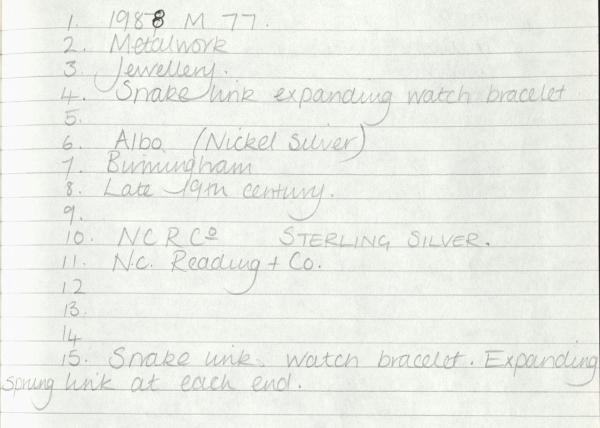 1. 1988 M 77.
2. Metalwork
3 Jewellery.
4. Snake link expanding watch bracelet
5.
6. Albo (Nickel Silver)
7. Birmingham
8. Late 19th century.
9.
10. NCR Co STERLING SILVER.
11. N.C. Reading + Co.
12
13.
14
15. Snake link watch bracelet. Expanding
sprung link at each end.